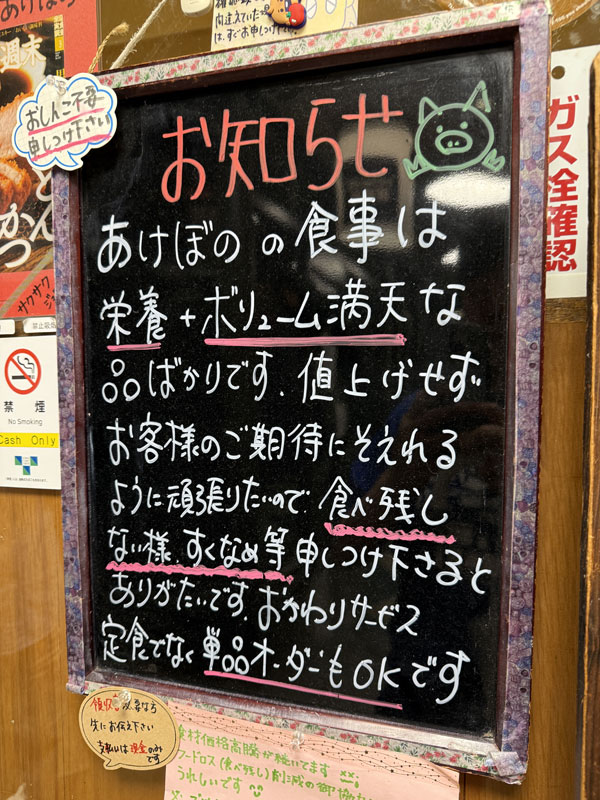 あけぼ
週末
とんかつ
サクサク
は、すぐお申しつけ下さい
おしんこ不要
申しつけ下さい
お知らせ
あけぼの の食事は
栄養+ボリューム満天な
品ばかりです、値上げせず
お客様のご期待にそえれる
ように頑張りたいので、食べ残し
ない様、すくなめ等申しつけ下さると
ありがたいです、おかわりサービス
定食でなく単品オーダーもOKです
ガス全確認
禁煙
No Smoking
Cash Only
領収書必要な方
先にお伝え下さい
支払いは現金のみ
です
食材価格高騰が続いてます
フードロス(食べ残し)削減の御協力
うれしいです